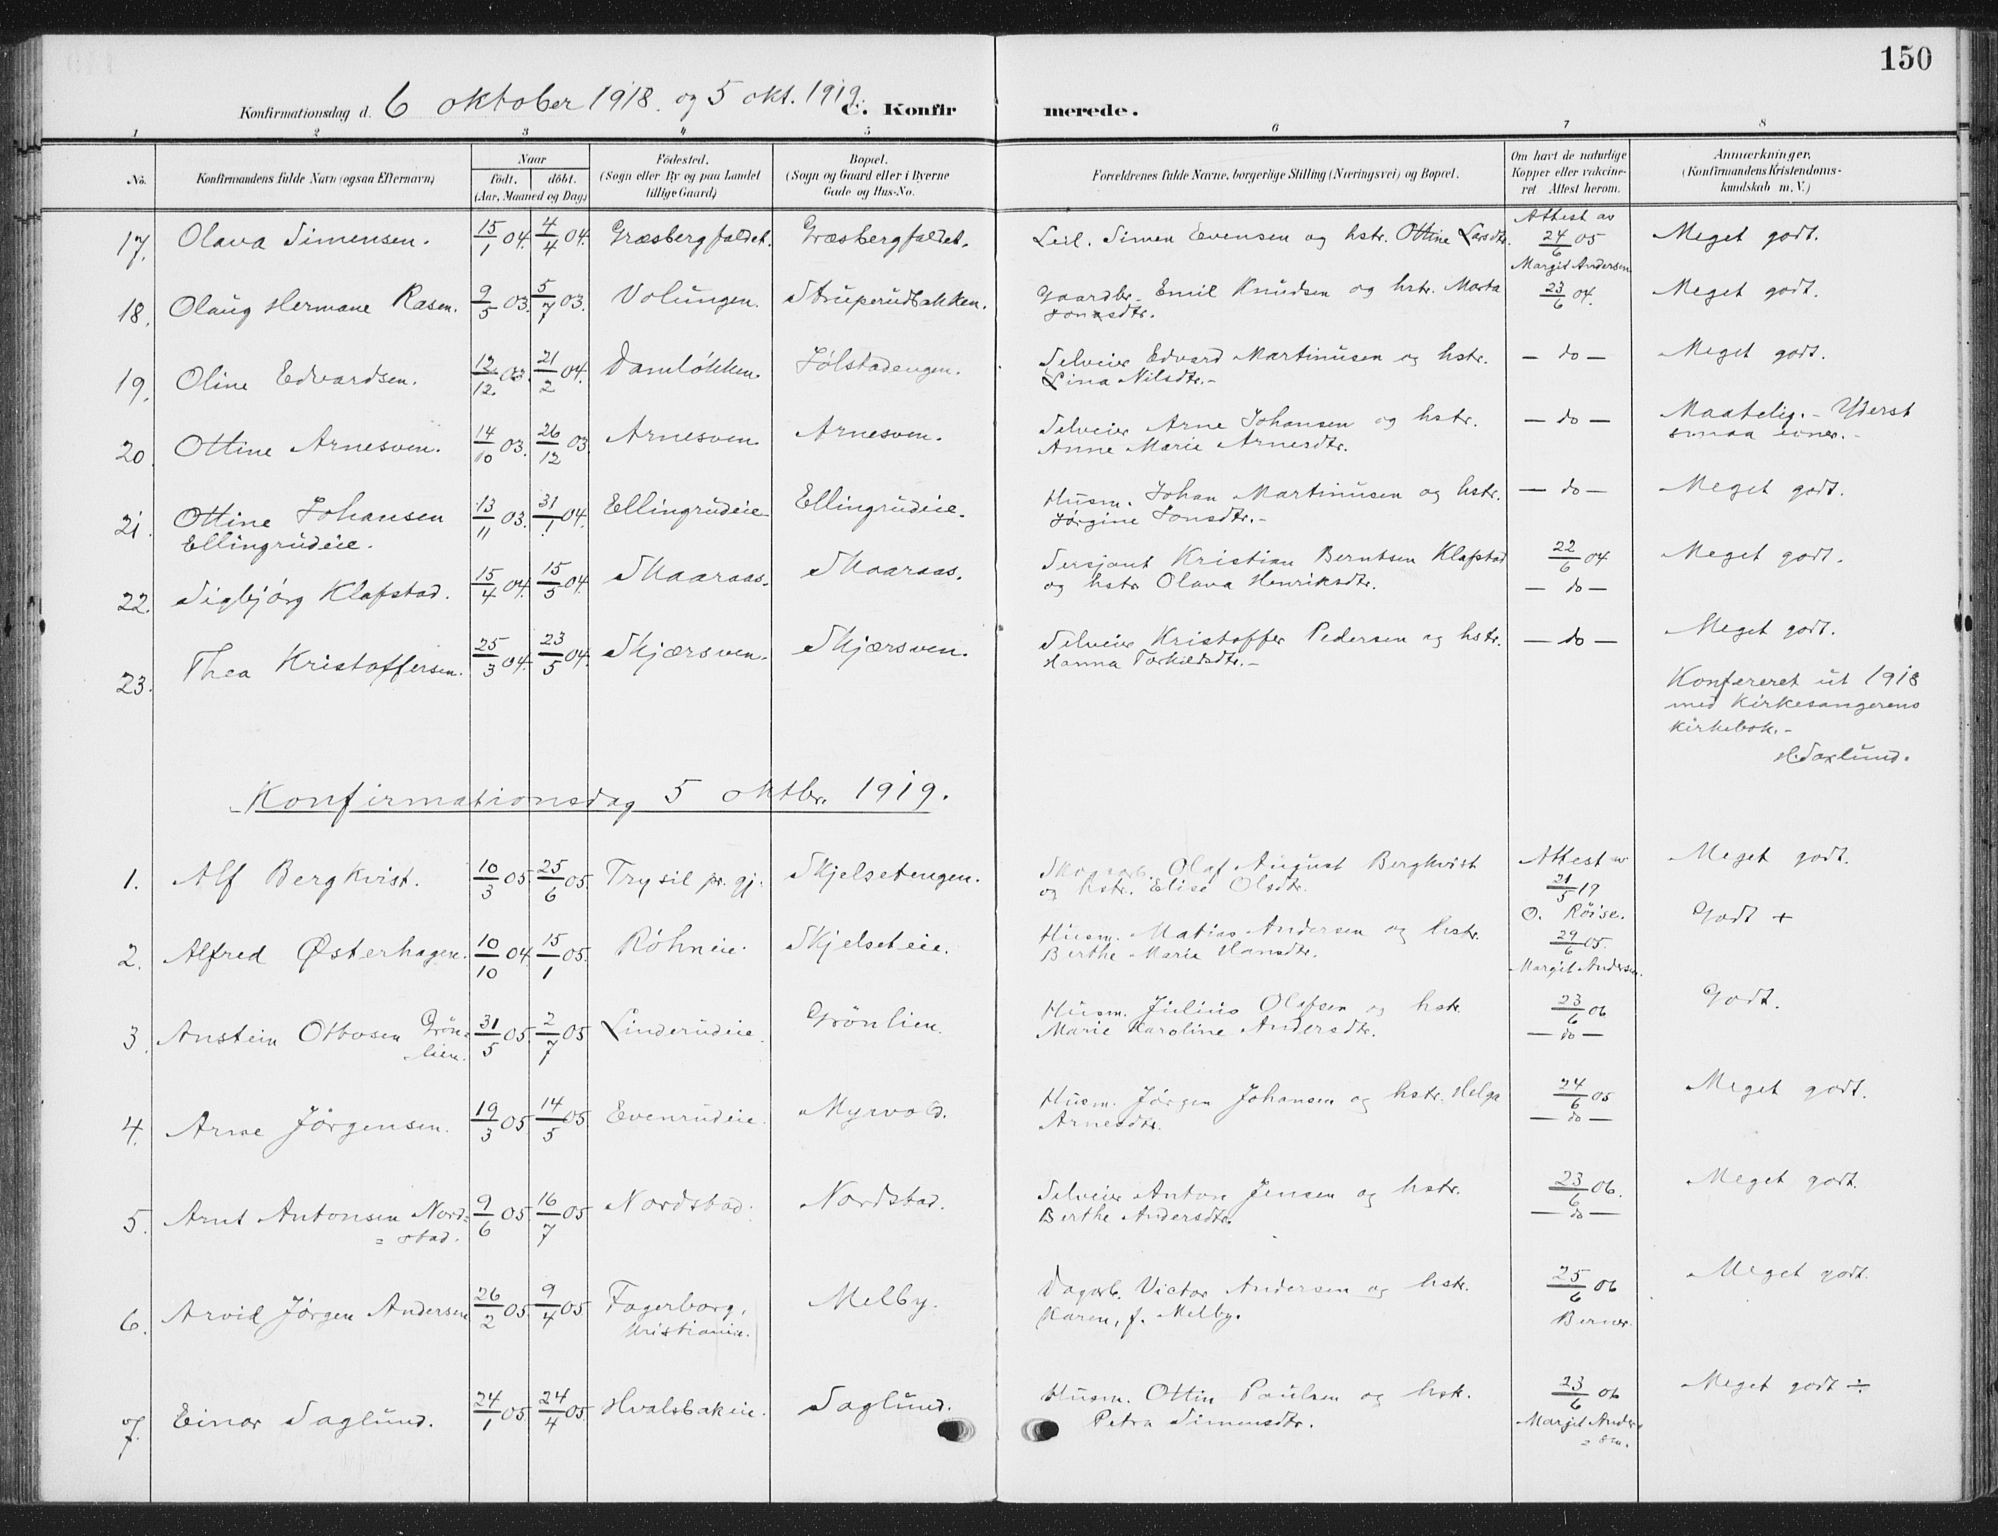 150
Konfirmationsdag d. 6 oktober 1918. og 5 okt. 1919. C. Konfirmerede.
1 2 3 4 5 6 7 8
No. Konfirmandens fulde Navn (ogsaa Efternavn) Naar født. døbt. (Aar, Maaned og Dag) Fødested. (Sogn eller By og paa Landet tillige Gaard) Bopæl. (Sogn og Gaard eller i Byerne Gade og Hus-No. Forældrenes fulde Navne, borgerlige Stilling (Næringsvei) og Bopæl. Om havt de naturlige Kopper eller vakcineret Attest herom. Anmærkninger. (Konfirmandens Kristendomskundskab m. V.)
17. Olava Simensen. 15/1 04. 4/4 04. Græsbergfaldet. Græsbergfaldet. Leil. Simen Evensen og hstr. Ottine Larsdtr. Attest av 24/6 05 Margit Andersen Meget godt.
18. Olaug Hermane Rasen. 9/5 03. 5/7 03. Volungen. Struperudbakken. Gaardbr. Emil Knudsen og hstr. Marta
Jonasdtr. 23/6 04. Meget godt.
19. Oline Edvardsen. 12/12 03. 21/2 04. Damløkken. Jølstadengen. Selveier Edvard Martinusen og hstr.
Lina Nilsdtr. - — do — Meget godt.
20. Ottine Arnesven. 14/10 03. 26/12 03. Arnesven. Arnesven. Selveier Arne Johansen og hstr.
Anne Marie Arnesdtr. — do — Maatelig. - Yderst
smaa evner. -
21. Ottine Johansen
Ellingrudeie. 13/11 03. 31/1 04. Ellingrudeie. Ellingrudeie. Husm. Johan Martinusen og hstr.
Jørgine Jonsdtr. - — do — Meget godt.
22. Sigbjørg Klafstad. 15/4 04. 15/5 04. Skaaraas. Skaaraas. Sersjant Kristian Berntsen Klafstad
og hstr Olava Henriksdtr. 22/6 04
— do — Meget godt.
23. Thea Kristoffersen. 25/3 04. 23/5 04. Skjærsven. Skjærsven. Selveier Kristoffer Pedersen og hstr.
Hanna Torkildsdtr. - — do — Meget godt.
Konfereret ut 1918
med Kirkesangerens
kirkebok. -
H. Saxlund.
Konfirmationsdag 5 oktbr. 1919.
1. Alf Bergkvist. 10/3 05. 25/6 05. Trysil pr. gj. Skjelsetengen. Skogarb. Olaf August Bergkvist
og hstr. Elise Olsdtr. Attest av
21/5 19
O. Röise. Meget godt.
2. Alfred Østerhagen. 10/10 04. 15/1 05. Röhneie. Skjelseteie. Husm. Matias Andersen og hstr.
Berthe Marie Hansdtr. 29/6 05.
Margit Andersen. Godt +
3. Anstein Otbosen Grön-
lien. 31/5 05. 2/7 05 Linderudeie. Grönlien. Husm. Julius Olafsen og hstr
Marie Karoline Andersdtr. 23/6 06
— do — Godt.
4. Arne Jörgensen. 19/3 05. 14/5 05. Evenrudeie. Myrvold. Husm. Jørgen Johansen og hstr. Helga
Arnesdtr. 24/6 05
— do — Meget godt.
5. Arnt Antonsen Nord=
= stad. 9/6 05. 16/7 05 Nordstad. Nordstad. Selveier Anton Jensen og hstr.
Berthe Andersdtr. 23/6 06.
— do — Meget godt.
6. Arvid Jörgen Andersen 26/2 05. 9/4 05. Fagerborg,
Kristiania. Melby. Dagarb. Victor Andersen og hstr.
Karen, f. Melby. 25/6 06
Berner. Meget godt.
7. Einar Saglund. 24/1 05. 24/4 05. Hvalsbakeie. Saglund. Husm. Ottin Paulsen og hstr.
Petra Simensdtr. 23/6 06
Margit Ander=
= sen. Meget godt ÷